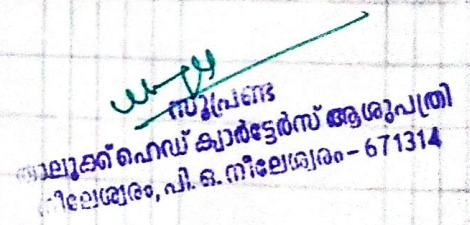 സൂപ്രണ്ട
താലൂക്ക് ഹെഡ് ക്വാർട്ടേർസ് ആശുപത്രി
നീലേശ്വരം, പി. ഒ. നീലേശ്വരം - 671314